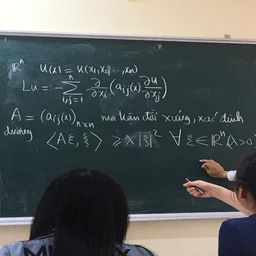 ℝⁿ u(x) = u(x₁, x₂, ..., xₙ)
Lu = -∑ⁿᵢ,ⱼ₌₁ ∂/∂xᵢ (aᵢⱼ(x) ∂u/∂xⱼ)
A = (aᵢⱼ(x))ₙₓₙ ma trận đối xứng, xác định
dương
⟨Aξ, ξ⟩ ≥ λ|ξ|² ∀ ξ ∈ ℝⁿ (λ>0)